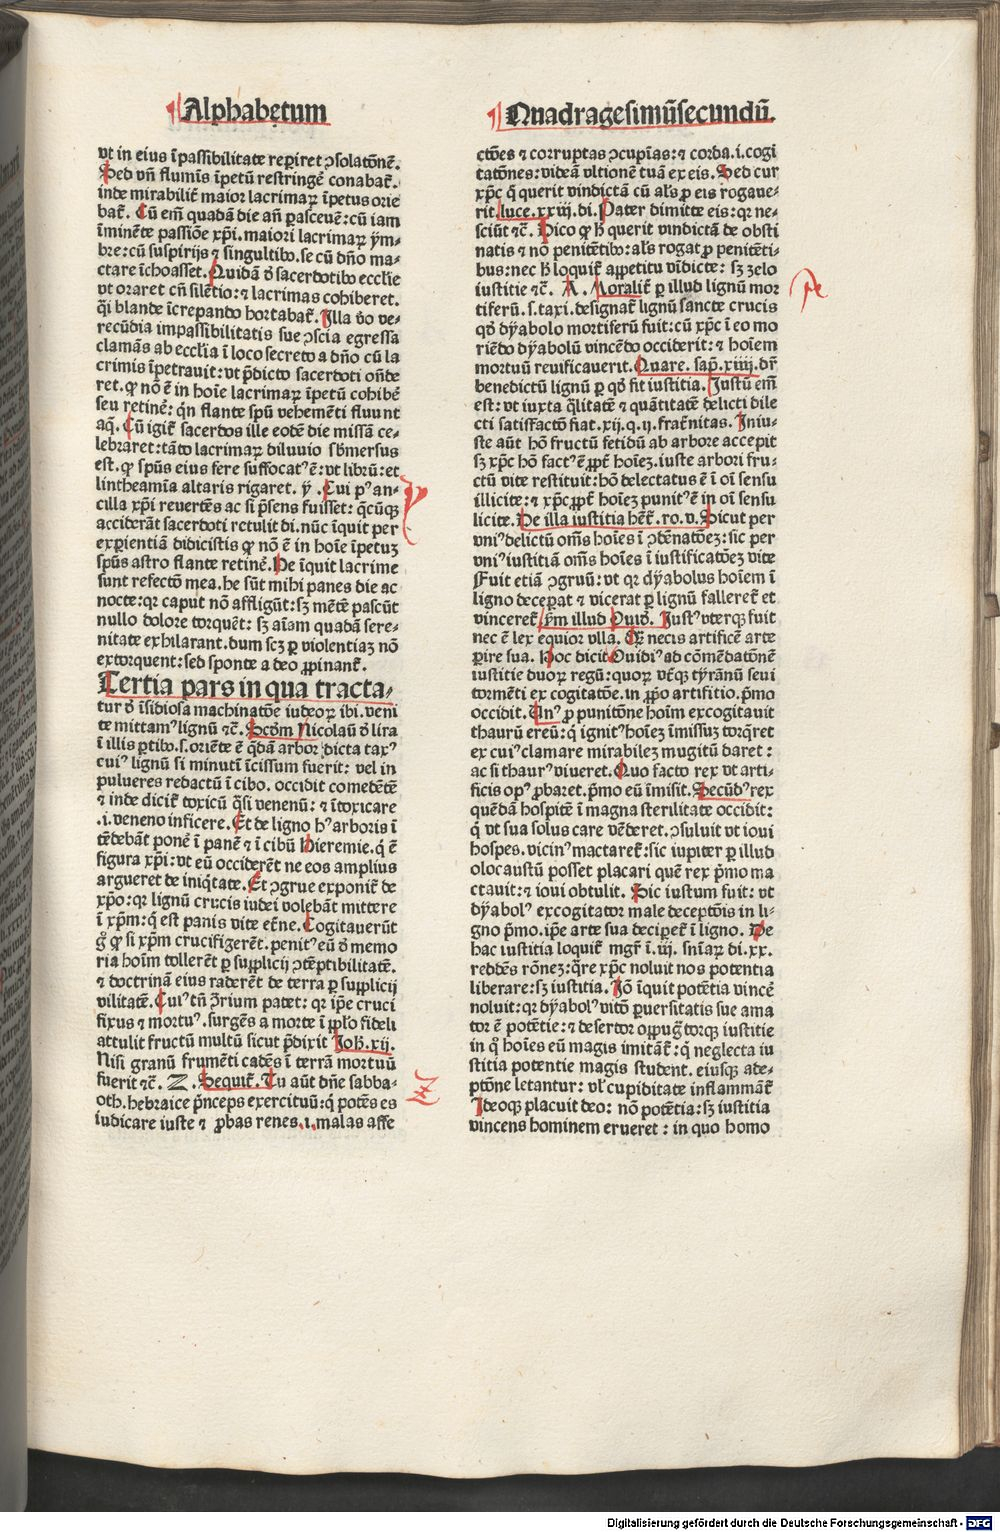 Alphabetum
vt in eius ĩpassibilitate reꝑiret ꝯsolatõnẽ.
Sed vñ flumĩs ĩpetũ restringẽ conabat̃.
inde mirabilit̃ maior lacrimaꝝ ĩpetus orie
bat̃. Cũ em̃ quadã die añ ꝑasceuẽ: cũ iam
ĩminẽte passiõe xp̃i. maiori lacrimaꝝ ẏm-
bre: cũ suspirijs ⁊ singultibꝰ. se cũ dño ma-
ctare ĩchoasset. Quidã ð sacerdotibꝰ eccl̃ie
vt oraret cũ silẽtio: ⁊ lacrimas cohiberet.
q̃i blande ĩcrepando hortabat̃. Illa ꝟo ve-
recũdia impassibilitatis sue ꝯscia egressa
clamãs ab eccl̃ia ĩ loco secreto a dño cũ la
crimis ĩpetrauit: vt p̃dicto sacerdoti oñde
ret. ꝙ nõ ẽ in hoĩe lacrimaꝝ ĩpetũ cohibẽ
seu retinẽ: q̃n flante sp̃u vehemẽti fluunt
aq̃. Cũ igit̃ sacerdos ille eodẽ die missã ce-
lebraret: tãto lacrimaꝝ diluuio sb̃mersus
est. ꝙ sp̃us eius fere suffocatꝰ ẽ: vt librũ: et
lintheamĩa altaris rigaret. ẏ. Cui pꝰ an-
cilla xp̃i reuertẽs ac si p̃sens fuisset: q̃cũqꝫ
acciderãt sacerdoti retulit di. nũc ĩquit per
exꝑientiã didicistis ꝙ nõ ẽ in hoĩe ĩpetuꝫ
sp̃us astro flante retinẽ. He ĩquit lacrime
sunt refectõ mea. he sũt mihi panes die ac
nocte: qr caput nõ affligũt: sꝫ mẽtẽ pascũt
nullo dolore torquẽt: sꝫ aĩam quadã sere-
nitate exhilarant. dum scꝫ ꝑ violentiaꝫ nõ
extorquent: sed sponte a deo ꝓpinant̃.
Tertia pars in qua tracta-
tur ð ĩsidiosa machinatõe iudeoꝝ ibi. veni
te mittamꝰ lignũ ⁊c̃. Scðm Nicolaũ ð lira
ĩ illis ꝑtibꝰ. s. oriẽte ẽ q̃dã arbor dicta taxꝰ
cuiꝰ lignũ si minutĩ ĩcissum fuerit: vel in
pulueres redactũ ĩ cibo. occidit comedẽtẽ
⁊ inde dicit̃ toxicũ q̃si venenũ: ⁊ ĩtoxicare
.i. veneno inficere. Et de ligno hꝰ arboris ĩ
tẽdebãt ponẽ ĩ panẽ ⁊ ĩ cibũ Hieremie. q̃ ẽ
figura xp̃i: vt eũ occiderẽt ne eos amplius
argueret de iniq̃tate. Et ꝯgrue exponit̃ de
xp̃o: qr lignũ crucis iudei volebãt mittere
ĩ xp̃m: q̃ est panis vite et̃ne. Cogitauerũt
g̊ ꝙ si xp̃m crucifigerẽt. penitꝰ eũ ð memo
ria hoĩm tollerẽt ꝑ supplicij ꝯtẽptibilitatẽ.
⁊ doctrinã eius raderẽt de terra ꝑ supplicij
vilitatẽ. Cuiꝰ tñ ꝯ̃rium patet: qr ip̃e cruci
fixus ⁊ mortuꝰ. surgẽs a morte ĩ pp̃lo fideli
attulit fructũ multũ sicut p̃dixit Joh̃. xij.
Nisi granũ frumẽti cadẽs ĩ terrã mortuũ
fuerit ⁊c̃. Z. Sequit̃. Tu aũt dñe sabba-
oth. hebraice p̃nceps exercituũ: q̃ potẽs es
iudicare iuste ⁊ ꝓbas renes .i. malas affe
ẏ
Z
Quadragesimũsecundũ.
ctões ⁊ corruptas ꝯcupĩas: ⁊ corda .i. cogi
tatões: videã vltionẽ tuã ex eis. Sed cur
xp̃c q̃ querit vindictã cũ al̃s ꝓ eis rogaue-
rit. luce. xxiij. di. Pater dimitte eis: qr ne-
sciũt ⁊c̃. Dico ꝙ h̃ querit vindictã de obsti
natis ⁊ nõ penitẽtibꝰ: al̃s rogat ꝓ penitẽti-
bus: nec h̃ loquit̃ appetitu vĩdicte: sꝫ zelo
iustitie ⁊c̃. A. Moralit̃ ꝑ illud lignũ mor
tiferũ. s. taxi. designat̃ lignũ sancte crucis
qð dẏabolo mortiferũ fuit: cũ xp̃c ĩ eo mo
riẽdo dẏabolũ vincẽdo occiderit: ⁊ hoĩem
mortuũ reuificauerit. Quare. sap̃. xiiij. dr̃
benedictũ lignũ ꝑ qð fit iustitia. Justũ em̃
est: vt iuxta q̃litatẽ ⁊ quãtitatẽ delicti dile
cti satisfactõ fiat. xij. q. ij. frat̃nitas. Iniu-
ste aũt hõ fructũ fetidũ ab arbore accepit
sꝫ xp̃c hõ factꝰ ẽ ꝓpt̃ hoĩeꝫ. iuste arbori fru-
ctũ vite restituit: hõ delectatus ẽ ĩ oĩ sensu
illicite: ⁊ xp̃c ꝓpt̃ hoĩeꝫ punitꝰ ẽ in oĩ sensu
licite. De illa iustitia hẽt̃. ro. v. Sicut per
vniꝰ delictũ om̃s hoĩes ĩ ꝯdẽnatõeꝫ: sic per
vniꝰ iustitiã om̃s hoĩes ĩ iustificatõeꝫ vite
Fuit etiã ꝯgruũ: vt qr dẏabolus hoĩem ĩ
ligno deceperat ⁊ vicerat ꝑ lignũ falleret̃ et
vinceret̃. ẏm illud Ouið. Justꝰ vterqꝫ fuit
nec ẽ lex equior vlla. Qr̃ necis artificẽ arte
ꝑire sua. Hoc dicit Ouidiꝰ ad cõmẽdatõnẽ
iustitie duoꝝ regũ: quoꝝ vt̃qꝫ tẏrãnũ seui
tormẽti ex cogitatõe. in ꝓpo artifitio. p̃mo
occidit. Unꝰ ꝓ punitõne hoĩm excogitauit
thaurũ ereũ: q̃ ignitꝰ hoĩeꝫ ĩmissuꝫ torq̃ret
ex cuiꝰ clamare mirabileꝫ mugitũ daret:
ac si thaurꝰ viueret. Quo facto rex vt arti-
ficis opꝰ ꝓbaret. p̃mo eũ ĩmisit. Secũdꝰ rex
quẽdã hospitẽ ĩ magna sterilitate occidit:
q̃ vt sua solus care vẽderet. ꝯsuluit vt ioui
hospes. vicinꝰ mactaret̃: sic iupiter ꝑ illud
olocaustũ posset placari quẽ rex p̃mo ma
ctauit: ⁊ ioui obtulit. Sic iustum fuit: vt
dẏabolꝰ excogitator male deceptõis in li-
gno p̃mo. ip̃e arte sua deciꝑet̃ ĩ ligno. De
hac iustitia loquit̃ mgr̃ ĩ. iij. sñiaꝝ di. xx.
reddẽs rõneꝫ: q̃re xp̃c noluit nos potentia
liberare: sꝫ iustitia. Nõ ĩquit potẽtia vincẽ
noluit: qr dẏabolꝰ vitõ ꝑuersitatis sue ama
tor ẽ potẽtie: ⁊ desertor oppug̃torqꝫ iustitie
in q̊ hoĩes eũ magis imitãt̃: q̃ neglecta iu
stitia potentie magis student. eiusqꝫ ade-
ptõne letantur: vl̃ cupiditate inflammãt̃
Ideoqꝫ placuit deo: nõ potẽtia: sꝫ iustitia
vincens hominem erueret: in quo homo
Digitalisierung gefördert durch die Deutsche Forschungsgemeinschaft - DFG